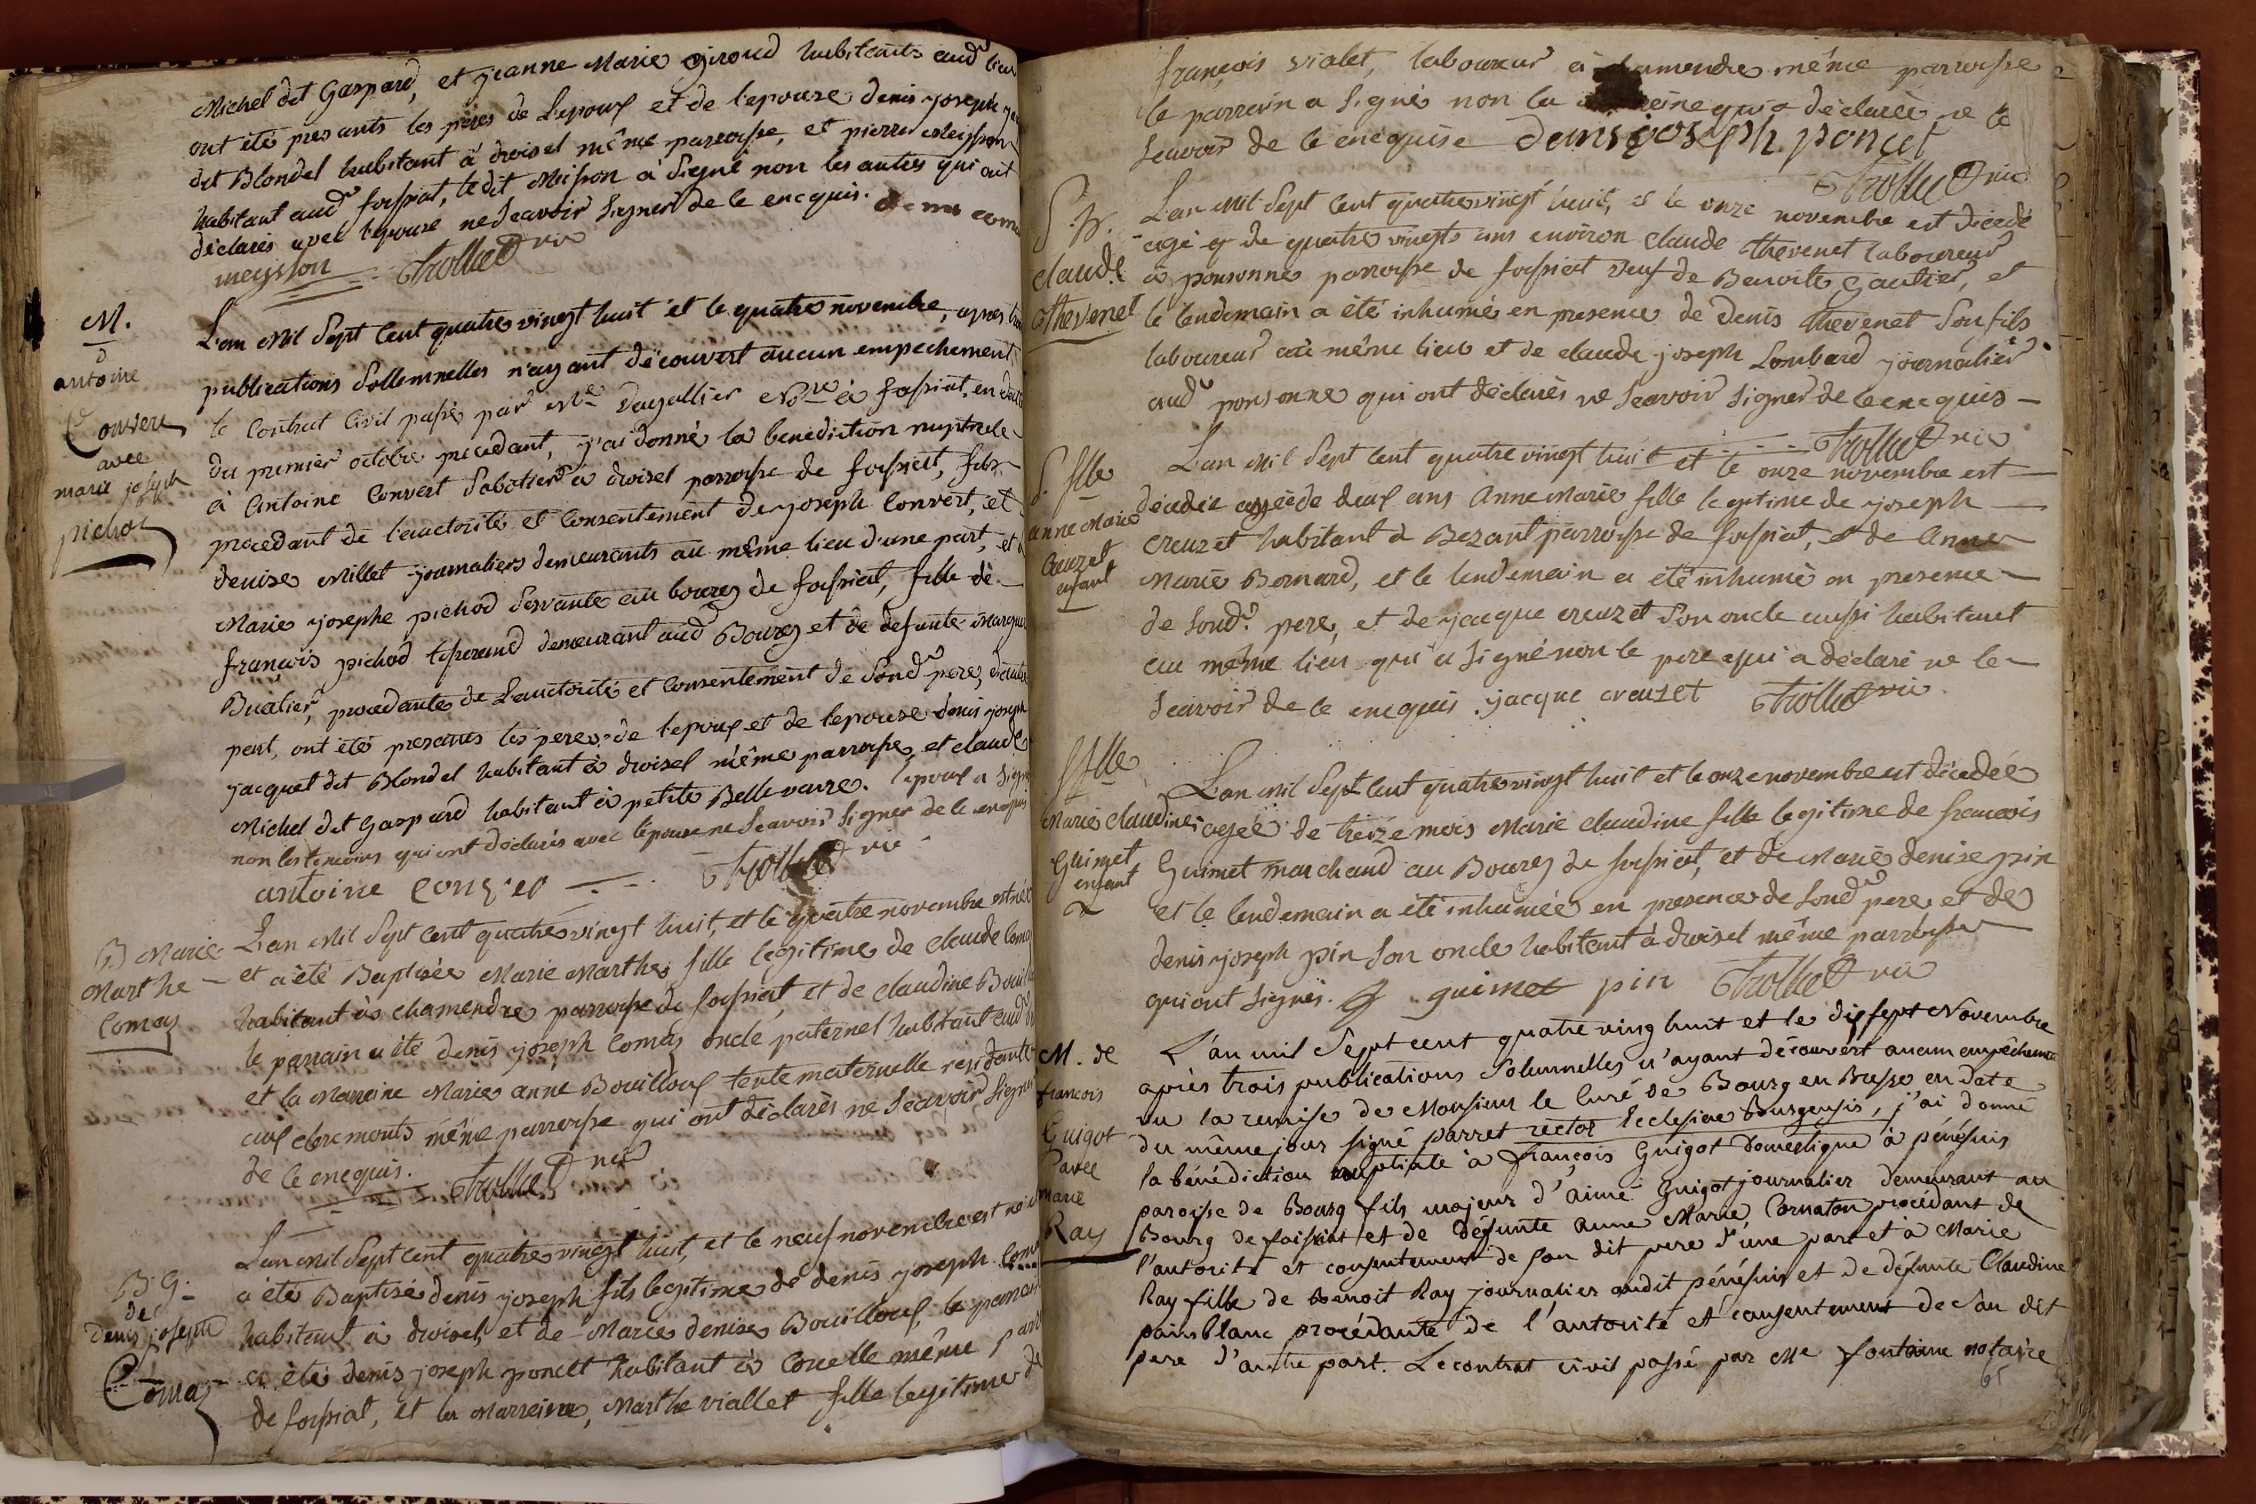 Michel dit Gaspard, et jeanne Marie giroud habitants aud lieu
ont été presants les peres de L'epoux et de l'epouse denis joseph
dit Blondel habitant à droisel même parroisse, et pierre
habitant aud foissiat, ledit Meisson a signé non les autres qui ont
déclarés avec l'epouse ne Scavoir signer de ce enequis.
meysson Trollict vic
M.
antoine
Convert
avec
marie joseph
pichod
L'an Mil Sept Cent quatre vingt huit et le quatre novembre, apres
publications Sollemnelles n'ayant découvert aucun empechement
le Contrat Civil passé par Me Dagallier Nore à foissiat, en
du premier octobre precedant, j'ai donné la benediction nuptiale
à Antoine Convert Sabotier à droisel parroisse de foissiat, fils
procedant de l'auctorité et Consentement de joseph Convert, et
denise Millet journaliers demeurants au même lieu d'une part, et
Marie josephe pichod Servante au bourg de foissiat, fille de
françois pichod tisserand demeurant aud Bourg et de defunte
Buatier, procedante de L'auctorité et Consentement de Sond pere, d'autre
part, ont étés presents les peres de l'epoux et de l'epouse denis joseph
jacquet dit Blondel habitant à droisel même parroisse, et claude
Michel dit Gaspard habitant à petite Bellevavre. l'epoux a signé
non les temoins qui ont déclarés avec l'epouse ne Scavoir signer de ce enequis
antoine Trollict vic
B Marie
Marthe
Comas
L'an Mil Sept Cent quatre vingt huit, et le quatre novembre est née
et a été Baptisée Marie Marthe fille legitime de claude
habitant à chamendre parroisse de foissiat, et de claudine
le parrain a été denis joseph Comas oncle paternel habitant aud
et la Marreine Marie anne Bouilloux tente maternelle residante
aux cleremonts même parroisse qui ont déclarés ne Scavoir signer
de ce enequis. Trollict vic
B. G.
de
denis joseph
Comas
L'an Mil Sept Cent quatre vingt huit, et le neuf novembre est né
a été Baptisé denis joseph fils legitime de denis joseph
habitant à droisel, et de Marie denise Bouilloux, le parrain
a été denis joseph poncet habitant à Couelle même
de foissiat, et la Marreine, Marthe viallet fille legitime de
françois vialet, laboureur à chamendre même parroisse
le parrain a signé non la qui a déclaré ne le
Scavoir de ce enequise denis joseph poncet
Trollict vic
claude
thevenet
L'an Mil Sept Cent quatre vingt huit, et le onze novembre est décédé
agé de quatre vingts ans environ claude thevenet laboureur
à ponsonne parroisse de foissiat veuf de Benoite gautier, et
le lendemain a été inhumé en presence de denis thevenet Son fils
laboureur au même lieu et de claude joseph Lombard journalier
aud ponsonne qui ont déclarés ne Scavoir signer de ce enequis
Trollict vic
S. flle
anne Marie
Creuzet
enfant
L'an Mil Sept Cent quatre vingt huit et le onze novembre est
décédée agée de deux ans Anne Marie fille legitime de joseph
creuzet habitant à Bezant parroisse de foissiat, et de Anne
Marie Bernard, et le lendemain a été inhumé en presence
de Sond. pere, et de jacque creuzet Son oncle aussi habitant
au même lieu qui a signé non le pere qui a déclaré ne le
Scavoir de ce enequis. jacque creuzet Trollict vic.
S flle
Marie claudine
Guimet
enfant
L'an Mil Sept Cent quatre vingt huit et le onze novembre est décedée
agée de treize mois Marie claudine fille legitime de francois
Guimet marchand au Bourg de foissiat, et de Marie denise pin
et le lendemain a été inhumée en presence de Sond pere et de
denis joseph pin Son oncle habitant à droisel même parroisse
qui ont signés. guimet pin Trollict vic
M. de
francois
Guigot
avec
marie
Ray
L'an mil Sept cent quatre ving huit et le dix sept Novembre
après trois publications Solennelles n'ayant découvert aucun empêchement
vu la remise de Monsieur le Curé de Bourg en Bresse en date
du même jour signé parret rector Ecclesiae Burgensis, j'ai donné
la bénédiction nuptiale à françois Guigot domestique à pénéssuis
paroisse de Bourg fils majeur d'aimé Guigot journalier demeurant au
Bourg de foissiat et de défunte anne Marie Cornaton procédant de
l'autorité et consentement de son dit pere d'une part et à Marie
Ray fille de Benoit Ray journalier audit pénéssuis et de défunte Claudine
painblanc procédante de l'autorité et consentement de San dit
pere d'autre part. Le contrat civil passé par Me fontaine notaire